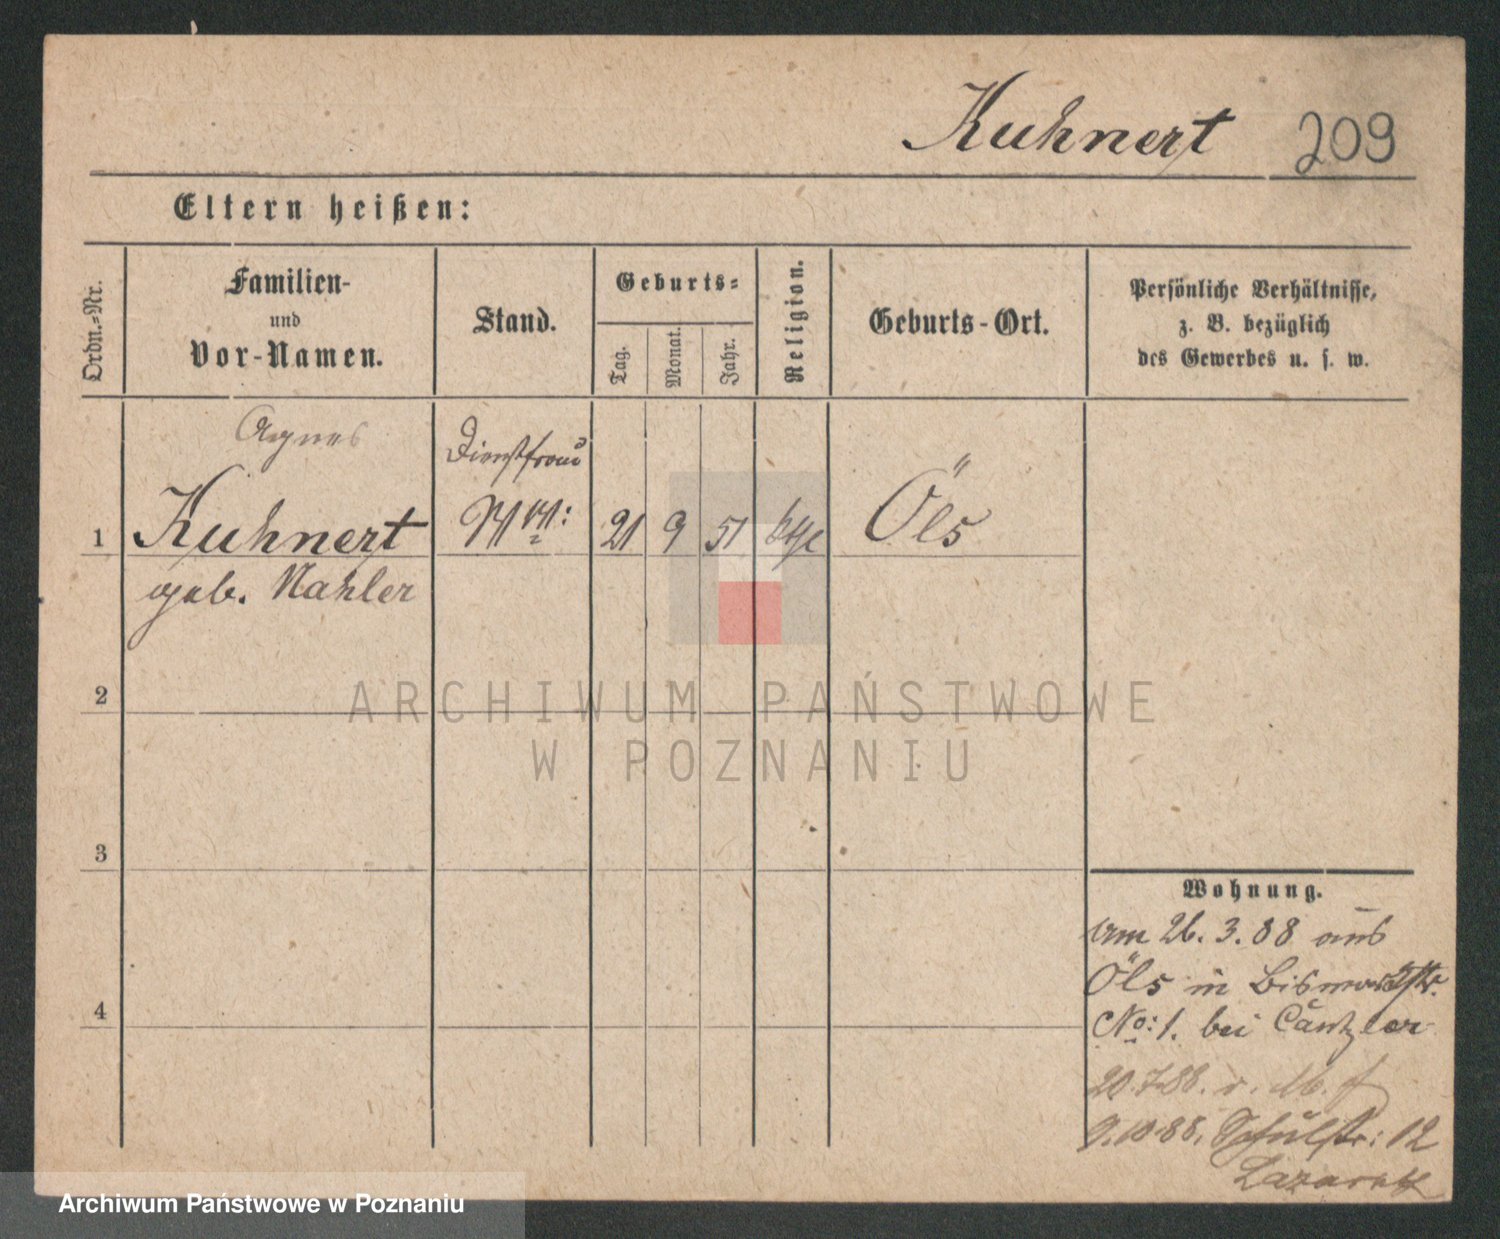 Kuhnert 209
Eltern heißen:
Ordn.-Nr.
Familien-
und
Vor-Namen.
Stand.
Geburts-
Tag.
Monat.
Jahr.
Religion.
Geburts-Ort.
Persönliche Verhältnisse,
z. B. bezüglich
des Gewerbes u. s. w.
Agnes
Dienstfrau
1 Kuhnert 21 9 51 Öls
geb. Nahler
2
3
4
Wohnung.
am 26. 3. 88 aus
Öls in Bismarckstr.
No: 1. bei
20.7.88.
9.10.88. Schulstr: 12
Lazareth
ARCHIWUM PAŃSTWOWE
W POZNANIU
Archiwum Państwowe w Poznaniu